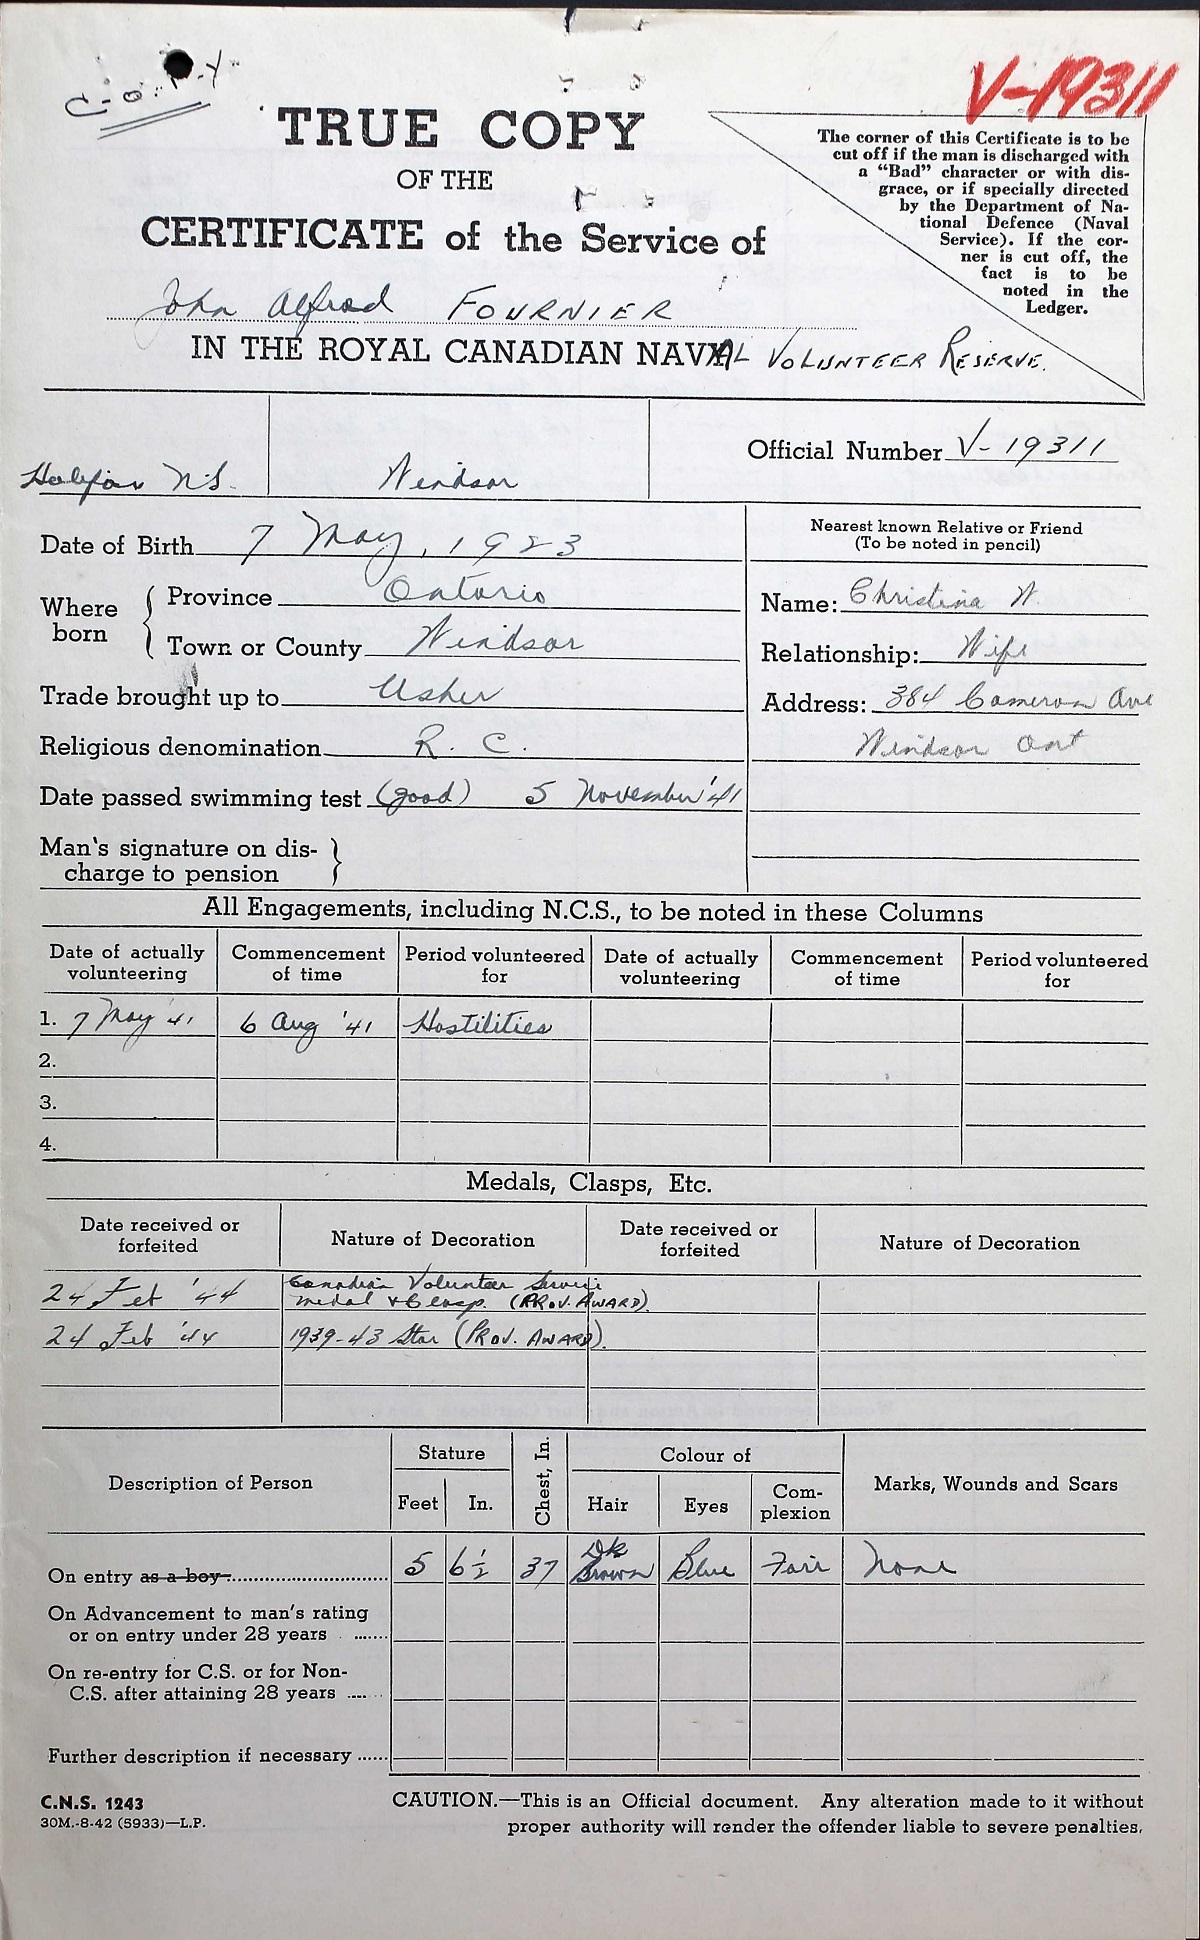 C-O-P-Y
V-19311
TRUE COPY
OF THE
CERTIFICATE of the Service of
John Alfred FOURNIER
IN THE ROYAL CANADIAN NAVAL VOLUNTEER RESERVE.
The corner of this Certificate is to be
cut off if the man is discharged with
a “Bad” character or with dis-
grace, or if specially directed
by the Department of Na-
tional Defence (Naval
Service). If the cor-
ner is cut off, the
fact is to be
noted in the
Ledger.
Halifax N.S. Windsor
Official Number V-19311
Date of Birth 7 May, 1923
Where born
Province Ontario
Town or County Windsor
Trade brought up to Usher
Religious denomination R. C.
Date passed swimming test (good) 5 November '41
Man's signature on dis-
charge to pension
Nearest known Relative or Friend
(To be noted in pencil)
Name: Christina W.
Relationship: Wife
Address: 384 Cameron Ave
Windsor Ont
All Engagements, including N.C.S., to be noted in these Columns
Date of actually volunteering Commencement of time Period volunteered for Date of actually volunteering Commencement of time Period volunteered for
1. 7 May '41 6 Aug '41 Hostilities
2.
3.
4.
Medals, Clasps, Etc.
Date received or forfeited Nature of Decoration Date received or forfeited Nature of Decoration
24 Feb '44 Canadian Volunteer Service
Medal & Clasp. (PROV. AWARD).
24 Feb '44 1939-43 Star (PROV. AWARD).
Description of Person Stature Feet In. Chest, In. Colour of Hair Eyes Com-plexion Marks, Wounds and Scars
On entry as a boy 5 6½ 37 Dk Brown Blue Fair None
On Advancement to man's rating
or on entry under 28 years
On re-entry for C.S. or for Non-
C.S. after attaining 28 years
Further description if necessary
C.N.S. 1243
30M.-8-42 (5933)—L.P.
CAUTION.—This is an Official document. Any alteration made to it without
proper authority will render the offender liable to severe penalties.